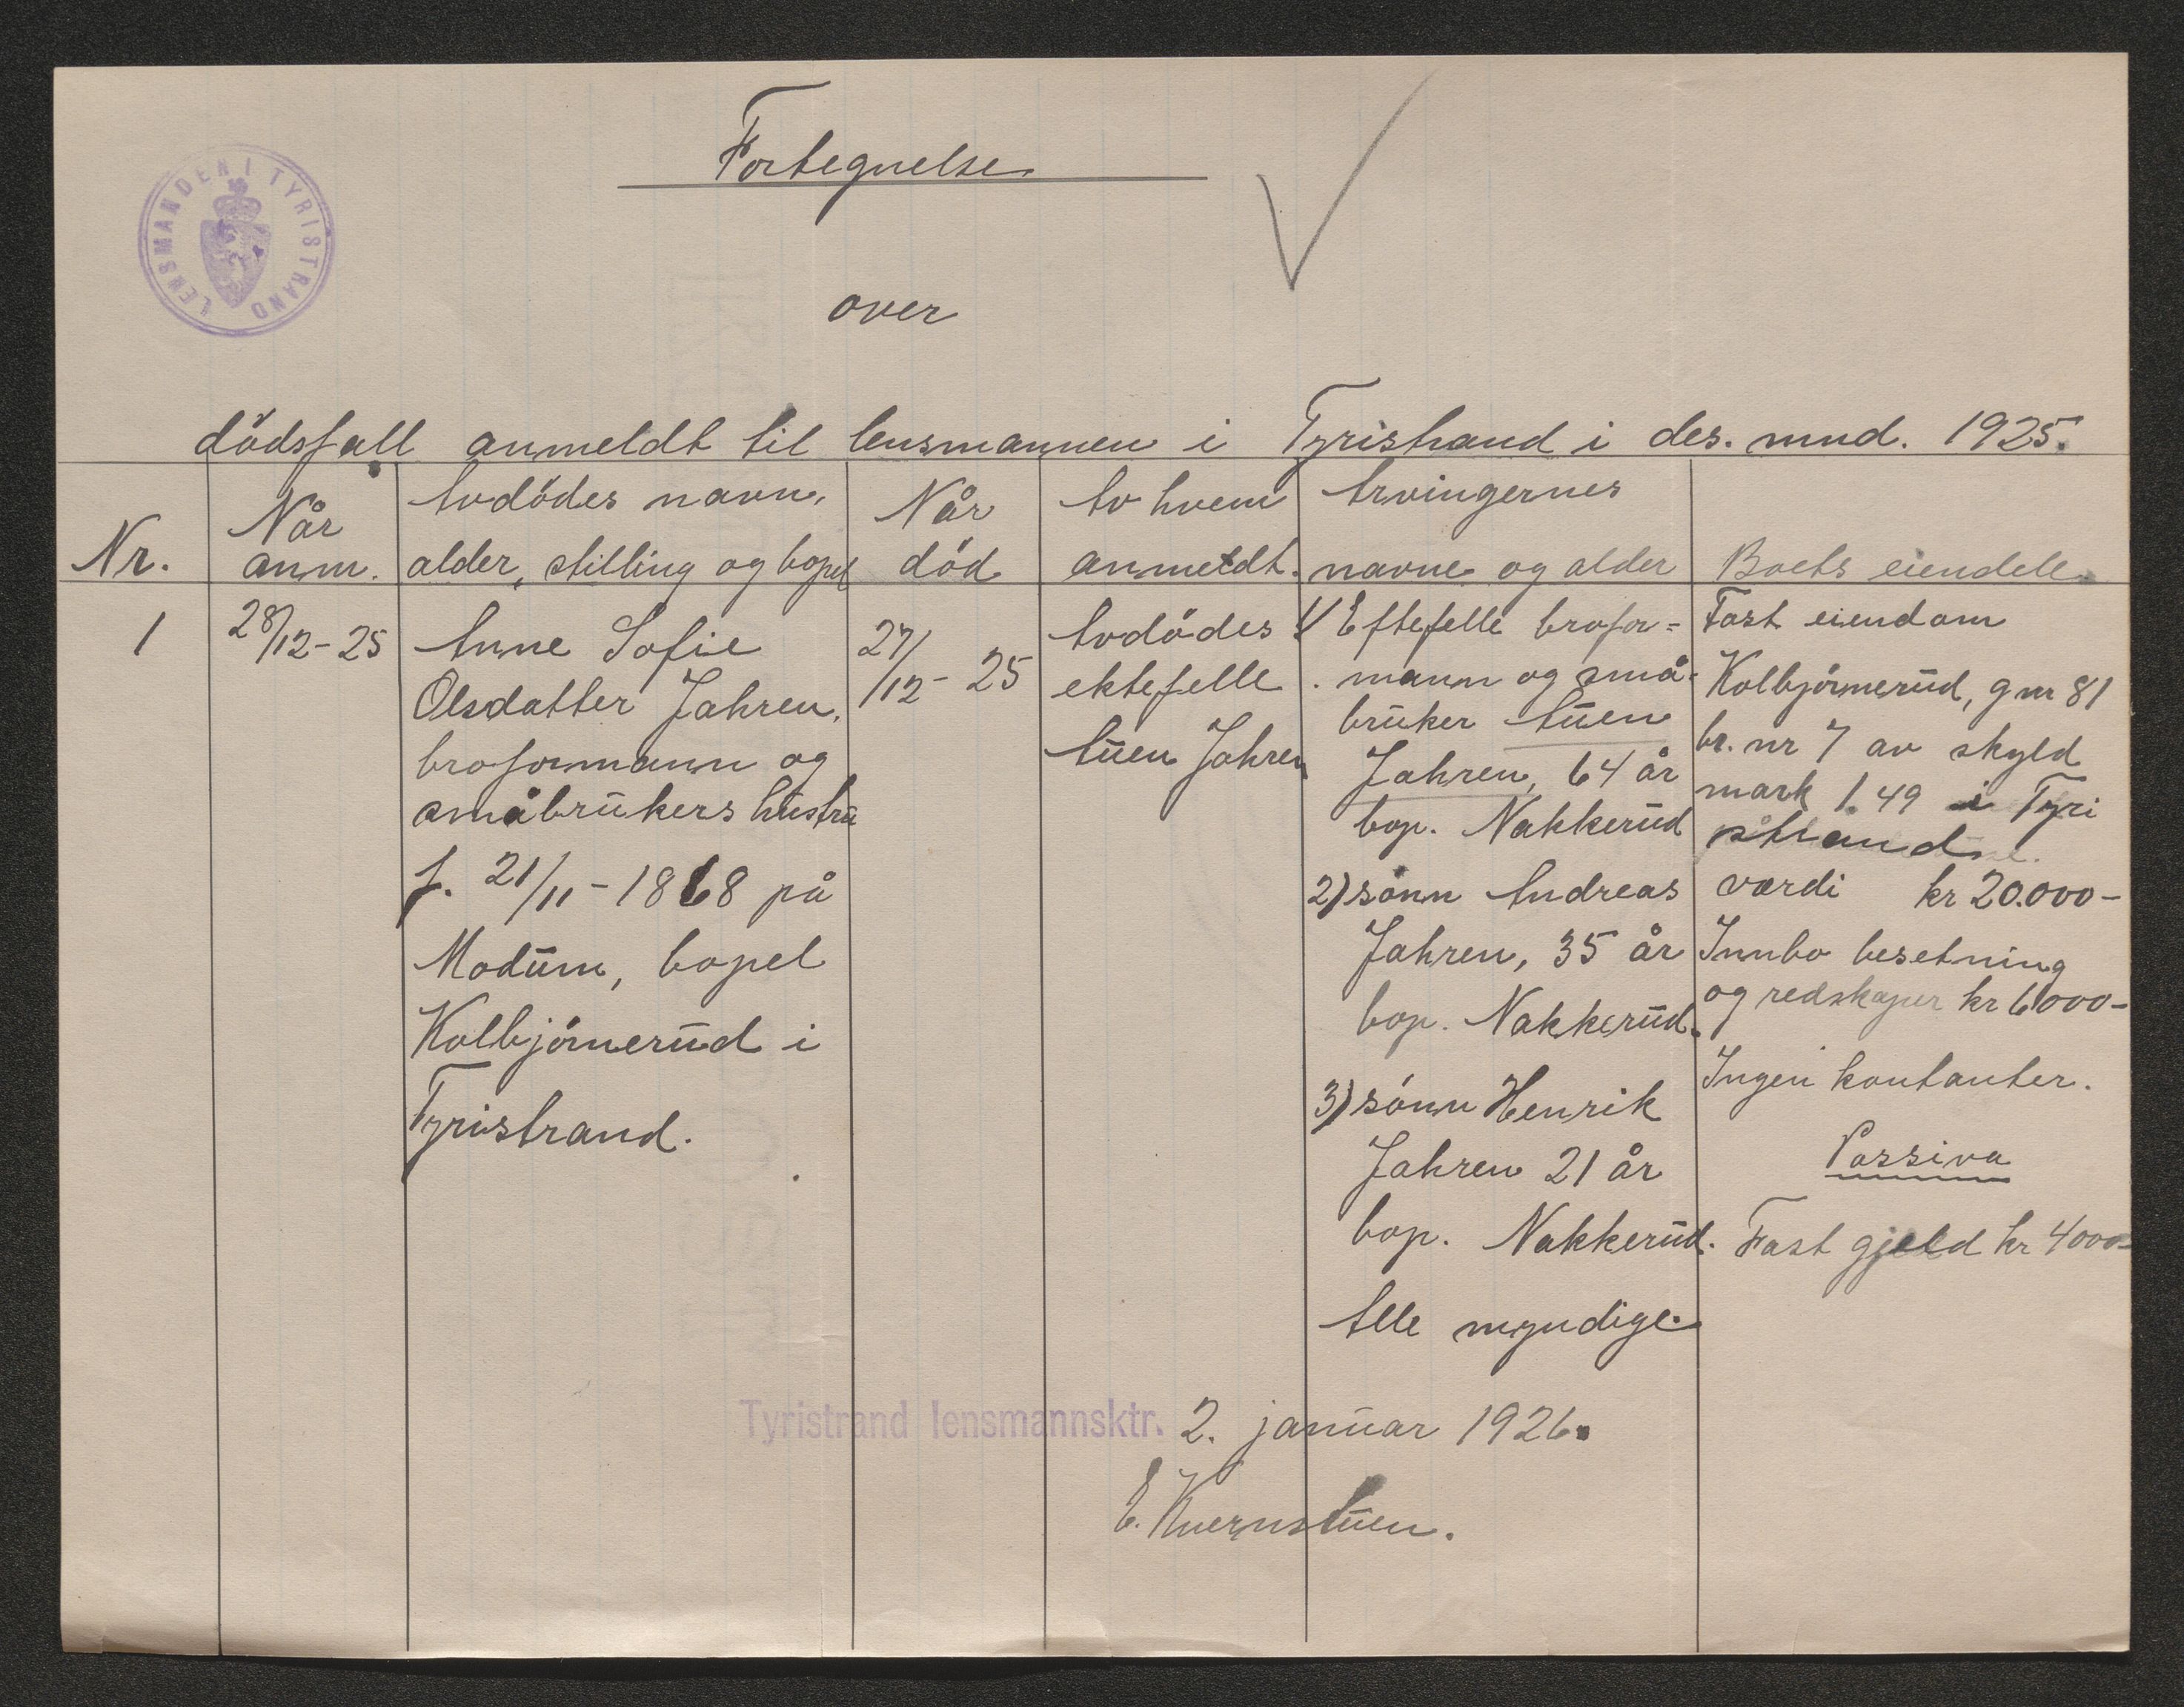 LENSMANDEN I TYRISTRAND
Fortegnelse
over
dödsfall anmeldt til lensmannen i Tyristrand i des. mnd. 1925.
Nr.
Når
anm.
Avdödes navn,
alder, stilling og bopel
Når
död
Av hvem
anmeldt.
Arvingernes
navne og alder
Boets eiendele
1
28/12-25
Anne Sofie
Olsdatter Jahren,
broformann og
småbrukers hustru
f. 21/11-1868 på
Modum, bopel
Kolbjörnerud i
Tyristrand.
27/12-25
Avdödes
ektefelle
Auen Jahren
1/ Eftefelle brofor=
mann og små-
bruker Auen
Jahren, 64 år
bop. Nakkerud
2) sönn Andreas
Jahren, 35 år
bop. Nakkerud.
3) sönn Henrik
Jahren 21 år
bop. Nakkerud.
Alle myndige.
Fast eiendom
Kolbjörnerud, gnr 81
br. nr 7 av skyld
mark 1.49 i Tyri
strand
værdi kr 20.000-
Innbo besetning
og redskaper kr 6000-
Ingen kontanter.
Passiva
Fast gjeld kr 4000-
Tyristrand lensmannsktr. 2. januar 1926.
E. Kvernstuen.